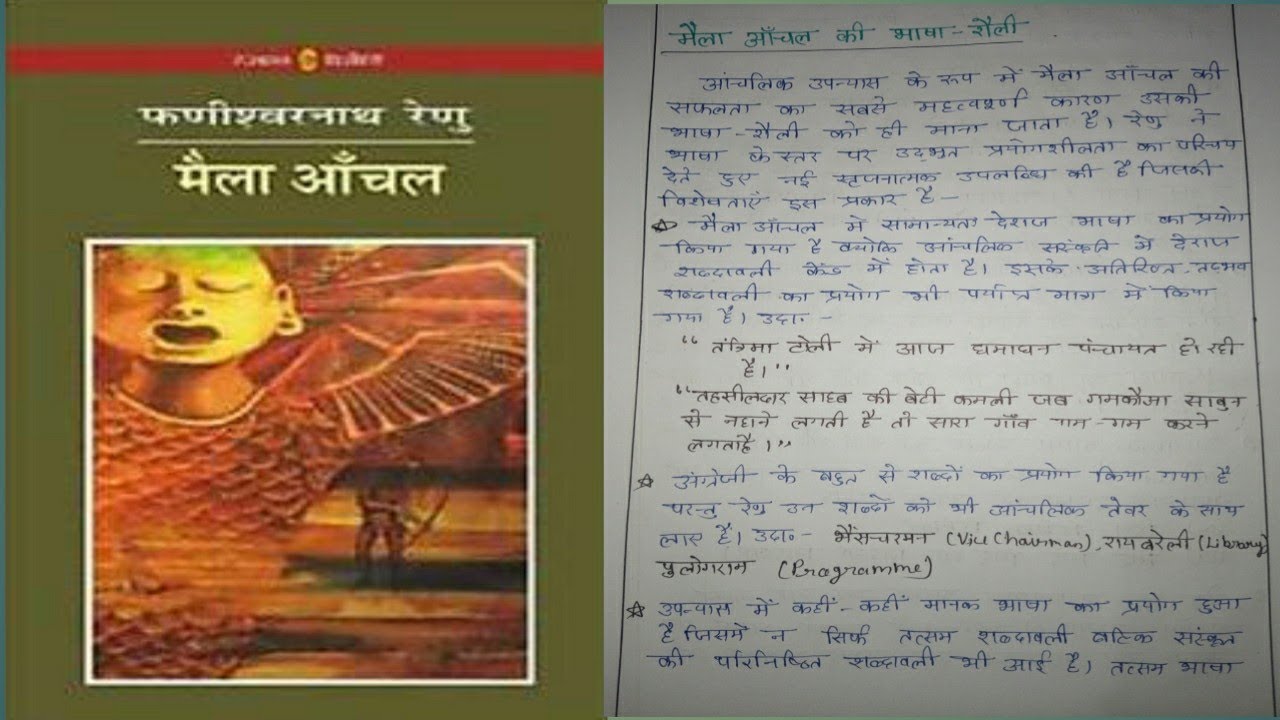 राजकमल पेपरबैक्स
फणीश्वरनाथ रेणु
मैला आँचल
मैला आँचल की भाषा-शैली
आंचलिक उपन्यास के रूप में मैला आँचल की
सफलता का सबसे महत्वपूर्ण कारण उसकी
भाषा-शैली को ही माना जाता है। रेणु ने
भाषा के स्तर पर उदभूत प्रयोगशीलता का परिचय
देते हुए नई सृजनात्मक उपलब्धि की है जिसकी
विशेषताएँ इस प्रकार है –
☆ मैला आँचल में सामान्यतः देशज भाषा का प्रयोग
किया गया है क्योंकि आंचलिक संस्कृति में देशज
शब्दावली केंद्र में होता है। इसके अतिरिक्त तदभव
शब्दावली का प्रयोग भी पर्याप्त मात्रा में किया
गया है। उदा. –
“तंत्रिमा टोली में आज घमाघन पंचायत हो रही
है।”
“तहसीलदार साहब की बेटी कमली जब गमकौआ साबुन
से नहाने लगती है तो सारा गाँव गम-गम करने
लगता है।”
☆ अंग्रेजी के बहुत से शब्दों का प्रयोग किया गया है
परन्तु रेणु उन शब्दों को भी आंचलिक तेवर के साथ
लाए हैं। उदा. – भैंसचरमन (Vice Chairman), रायबरेली (Library)
पुलोगराम (Programme)
☆ उपन्यास में कहीं-कहीं मानक भाषा का प्रयोग हुआ
है जिसमें न सिर्फ तत्सम शब्दावली बल्कि संस्कृत
की परिनिष्ठित शब्दावली भी आई है। तत्सम भाषा